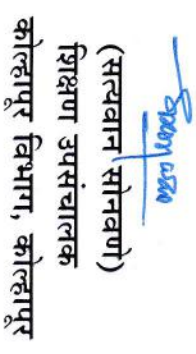 (सत्यवान सोनवणे)
शिक्षण उपसंचालक
कोल्हापूर विभाग, कोल्हापूर